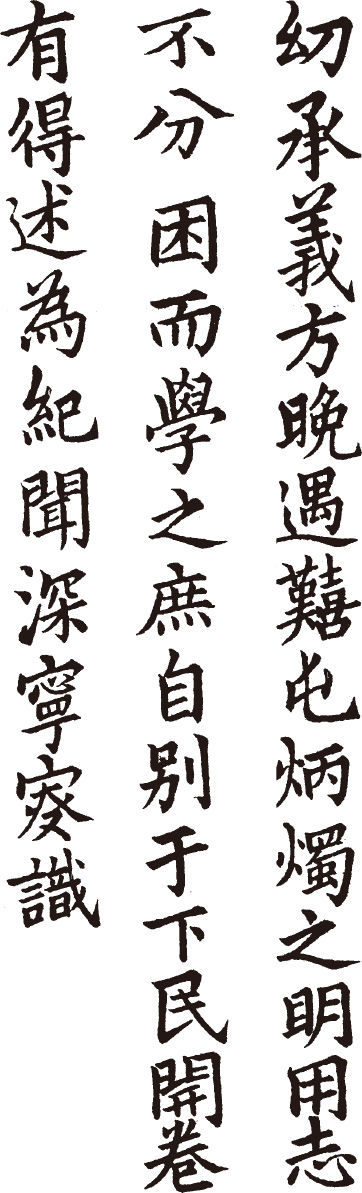 㓜承義方晚遇囏屯炳燭之眀用志
不分困而學之庶自别于下民開卷
有得述為紀聞深寧叜識